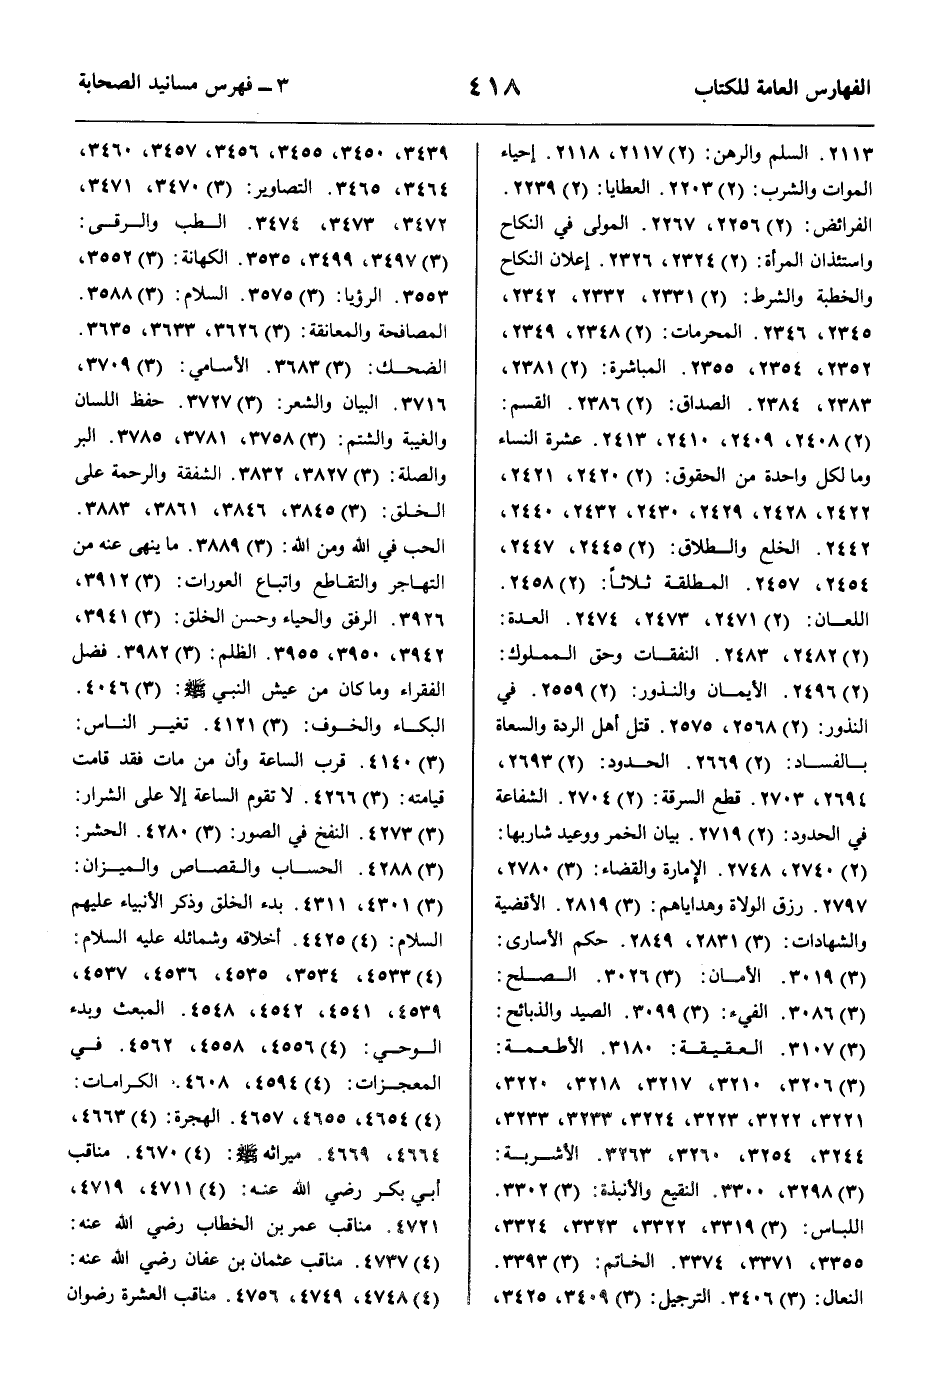 الفهارس العامة للكتاب ٤١٨ ٣ ـ فهرس مسانيد الصحابة
٢١١٣. السلم والرهن: (٢) ٢١١٧، ٢١١٨. إحياء
الموات والشرب: (٢) ٢٢٠٣. العطايا: (٢) ٢٢٣٩.
الفرائض: (٢) ٢٢٥٦، ٢٢٦٧. المولى في النكاح
واستئذان المرأة: (٢) ٢٣٢٤، ٢٣٢٦. إعلان النكاح
والخطبة والشرط: (٢) ٢٣٣١، ٢٣٣٢، ٢٣٤٢،
٢٣٤٥، ٢٣٤٦. المحرمات: (٢) ٢٣٤٨، ٢٣٤٩،
٢٣٥٢، ٢٣٥٤، ٢٣٥٥. المباشرة: (٢) ٢٣٨١،
٢٣٨٣، ٢٣٨٤. الصداق: (٢) ٢٣٨٦. القسم:
(٢) ٢٤٠٨، ٢٤٠٩، ٢٤١٠، ٢٤١٣. عشرة النساء
وما لكل واحدة من الحقوق: (٢) ٢٤٢٠، ٢٤٢١،
٢٤٢٢، ٢٤٢٨، ٢٤٢٩، ٢٤٣٠، ٢٤٣٢، ٢٤٤٠،
٢٤٤٢. الخلع والـطلاق: (٢) ٢٤٤٥، ٢٤٤٧،
٢٤٥٤، ٢٤٥٧. المطلقة ثلاثاً: (٢) ٢٤٥٨.
اللعـان: (٢) ٢٤٧١، ٢٤٧٣، ٢٤٧٤. العدة:
(٢) ٢٤٨٢، ٢٤٨٣. النفقات وحق الـمملوك:
(٢) ٢٤٩٦. الأيمـان والنـذور: (٢) ٢٥٥٩. في
النذور: (٢) ٢٥٦٨، ٢٥٧٥. قتل أهل الردة والسعاة
بـالفسـاد: (٢) ٢٦٦٩. الحـدود: (٢) ٢٦٩٣،
٢٦٩٤، ٢٧٠٣. قطع السرقة: (٢) ٢٧٠٤. الشفاعة
في الحدود: (٢) ٢٧١٩. بيان الخمر ووعيد شاربها:
(٢) ٢٧٤٠، ٢٧٤٨. الإمارة والقضاء: (٣) ٢٧٨٠،
٢٧٩٧. رزق الولاة وهداياهم: (٣) ٢٨١٩. الأقضية
والشهادات: (٣) ٢٨٣١، ٢٨٤٩. حكم الأسارى:
(٣) ٣٠١٩. الأمـان: (٣) ٣٠٢٦. الـصـلح:
(٣) ٣٠٨٦. الفيء: (٣) ٣٠٩٩. الصيد والذبائح:
(٣) ٣١٠٧. الـعـقـيـقـة: ٣١٨٠. الأطـعـمـة:
(٣) ٣٢٠٦، ٣٢١٠، ٣٢١٧، ٣٢١٨، ٣٢٢٠،
٣٢٢١، ٣٢٢٢، ٣٢٢٣، ٣٢٢٤، ٣٢٣٣، ٣٢٣٣،
٣٢٤٤، ٣٢٥٤، ٣٢٦٠، ٣٢٦٣. الأشـربـة:
(٣) ٣٢٩٨، ٣٣٠٠. النقيع والأنبذة: (٣) ٣٣٠٢.
اللباس: (٣) ٣٣١٩، ٣٣٢٢، ٣٣٢٣، ٣٣٢٤،
٣٣٥٥، ٣٣٧١، ٣٣٧٤. الخـاتم: (٣) ٣٣٩٣.
النعال: (٣) ٣٤٠٦. الترجيل: (٣) ٣٤٠٩، ٣٤٢٥،
٣٤٣٩، ٣٤٥٠، ٣٤٥٥، ٣٤٥٦، ٣٤٥٧، ٣٤٦٠،
٣٤٦٤، ٣٤٦٥. التصاوير: (٣) ٣٤٧٠، ٣٤٧١،
٣٤٧٢، ٣٤٧٣، ٣٤٧٤. الـطب والـرقـى:
(٣) ٣٤٩٧، ٣٤٩٩، ٣٥٣٥. الكهانة: (٣) ٣٥٥٢،
٣٥٥٣. الرؤيا: (٣) ٣٥٧٥. السلام: (٣) ٣٥٨٨.
المصافحة والمعانقة: (٣) ٣٦٢٦، ٣٦٣٣، ٣٦٣٥.
الضحـك: (٣) ٣٦٨٣. الأسامي: (٣) ٣٧٠٩،
٣٧١٦. البيان والشعر: (٣) ٣٧٢٧. حفظ اللسان
والغيبة والشتم: (٣) ٣٧٥٨، ٣٧٨١، ٣٧٨٥. البر
والصلة: (٣) ٣٨٢٧، ٣٨٣٢. الشفقة والرحمة على
الـخلق: (٣) ٣٨٤٥، ٣٨٤٦، ٣٨٦١، ٣٨٨٣.
الحب في الله ومن الله: (٣) ٣٨٨٩. ما ينهى عنه من
التهاجر والتقاطع واتباع العورات: (٣) ٣٩١٢،
٣٩٢٦. الرفق والحياء وحسن الخلق: (٣) ٣٩٤١،
٣٩٤٢، ٣٩٥٠، ٣٩٥٥. الظلم: (٣) ٣٩٨٢. فضل
الفقراء وما كان من عيش النبي ﷺ: (٣) ٤٠٤٦.
البكـاء والخـوف: (٣) ٤١٢١. تغيـر النـاس:
(٣) ٤١٤٠. قرب الساعة وأن من مات فقد قامت
قيامته: (٣) ٤٢٦٦. لا تقوم الساعة إلا على الشرار:
(٣) ٤٢٧٣. النفخ في الصور: (٣) ٤٢٨٠. الحشر:
(٣) ٤٢٨٨. الحسـاب والـقصـاص والـميـزان:
(٣) ٤٣٠١، ٤٣١١. بدء الخلق وذكر الأنبياء عليهم
السلام: (٤) ٤٤٢٥. أخلاقه وشمائله عليه السلام:
(٤) ٤٥٣٣، ٣٥٣٤، ٤٥٣٥، ٤٥٣٦، ٤٥٣٧،
٤٥٣٩، ٤٥٤١، ٤٥٤٢، ٤٥٤٨. المبعث وبدء
الـوحي: (٤) ٤٥٥٦، ٤٥٥٨، ٤٥٦٢. فـي
المعجزات: (٤) ٤٥٩٤، ٤٦٠٨. الكرامات:
(٤) ٤٦٥٤، ٤٦٥٥، ٤٦٥٧. الهجرة: (٤) ٤٦٦٣،
٤٦٦٤، ٤٦٦٩. ميراثه ﷺ: (٤) ٤٦٧٠. مناقب
أبي بكر رضي الله عنه: (٤) ٤٧١١، ٤٧١٩،
٤٧٢١. مناقب عمر بن الخطاب رضي الله عنه:
(٤) ٤٧٣٧. مناقب عثمان بن عفان رضي الله عنه:
(٤) ٤٧٤٨، ٤٧٤٩، ٤٧٥٦. مناقب العشرة رضوان